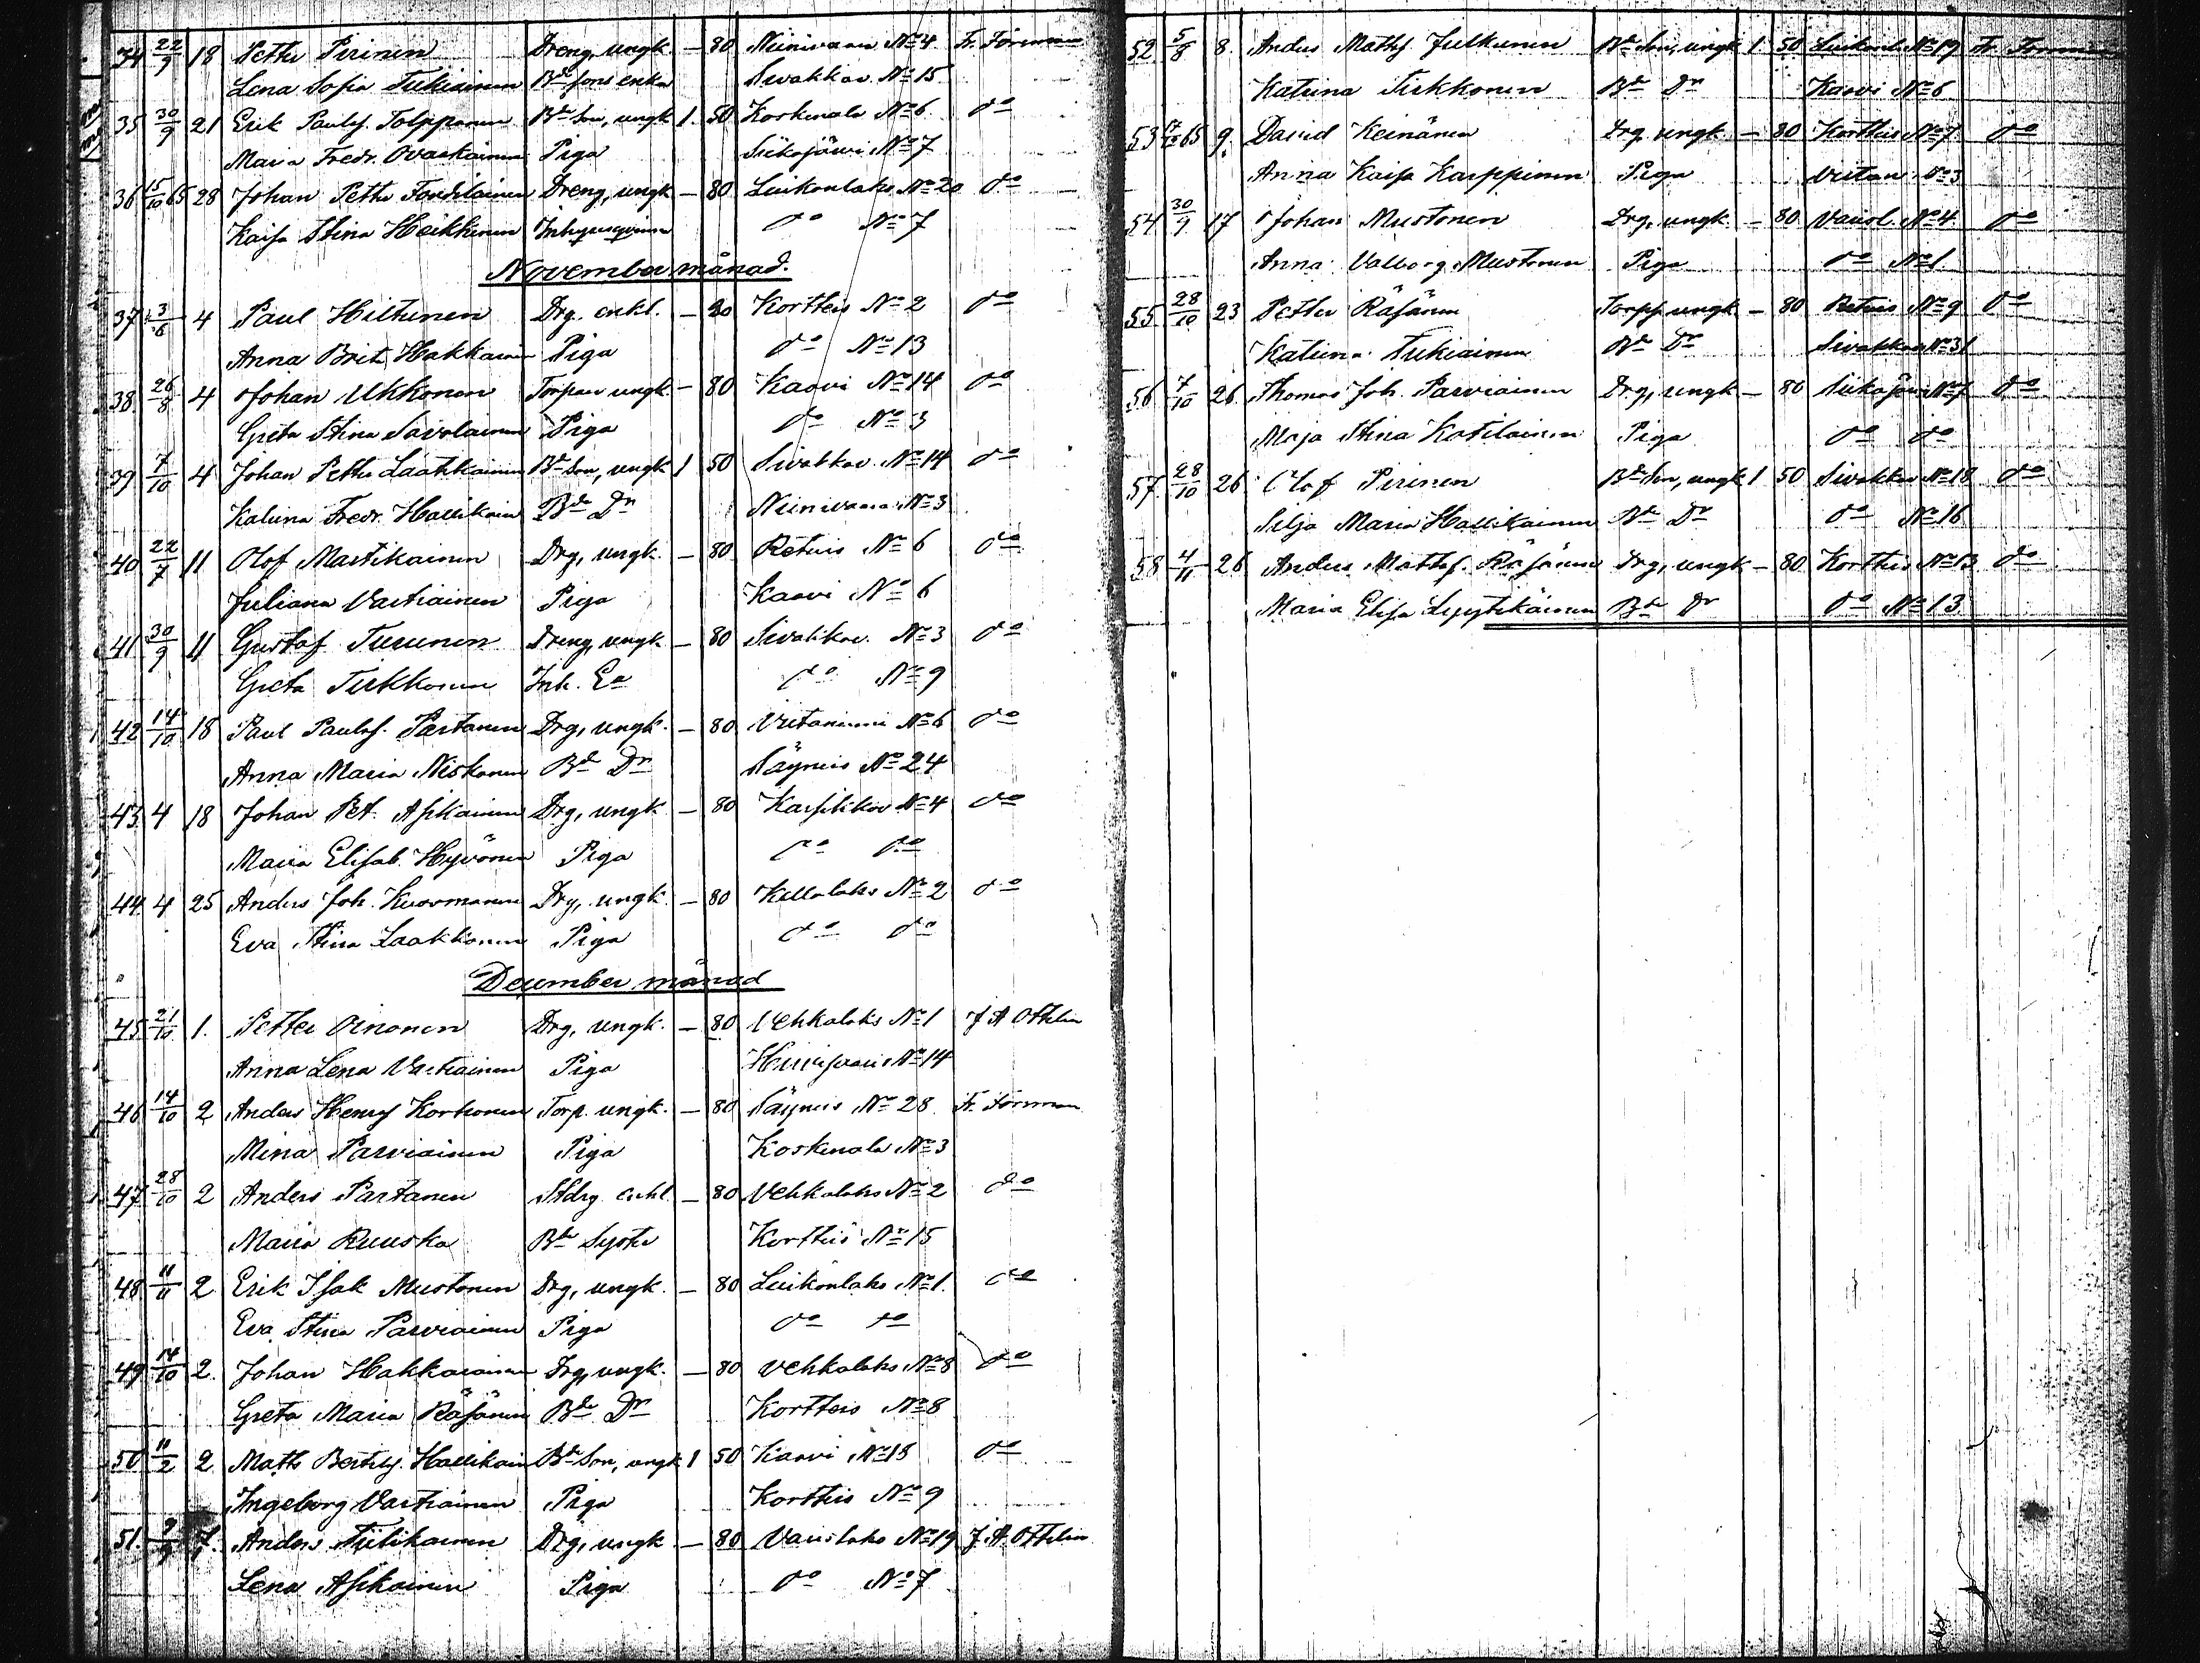 34 22/9 18 Petter Pirinen Dreng, ungk. — 80 Niinivaara No 4 Fr. Forsman
Lena Sofia Tukiainen Bde sons enka Sivakkav. No 15
35 30/9 21 Erik Paulss. Tolppanen Bde Son, ungk 1. 50 Koskenala No 6 do
Maria Fredr. Ovaskainen Piga Siikajärvi No 7
36 15/10 65 28 Johan Petter Tardilainen Dreng, ungk — 80 Luikonlaks No 20 do
Kaisa Stina Heikkinen Inhysesqvinna do No 7
November månad.
37 3/6 4 Paul Hiltunen Drg. enkl. — 20 Kortteis No 2 do
Anna Brita Hakkarain Piga do No 13
38 26/8 4 Johan Ukkonen Torpare ungk. — 80 Kaavi No 14 do
Greta Stina Savolainen Piga do No 3
39 7/10 4 Johan Petter Laakkainen Bde Son, ungk 1 50 Sivakkav. No 14 do
Katrina Fredr. Hallikain Bde Dr Niinivaara No 3
40 22/7 11 Olof Martikainen Drg, ungk. — 80 Retuis No 6 do
Juliana Vartiainen Piga Kaavi No 6
41 30/9 11 Gustaf Turunen Dreng, ungk — 80 Sivakkav. No 3 do
Greta Tirkkonen Inh. Ea do No 9
42 14/10 18 Paul Paulss. Partanen Drg, ungk. — 80 Viitaniemi No 6 do
Anna Maria Niskanen Bde Dr Säyneis No 24
43 4 18 Johan Pet. Asikainen Drg, ungk. — 80 Karsikkov No 4 do
Maria Elisab. Hyvönen Piga do do
44 4 25 Anders Joh. Kuosmanen Drg, ungk. — 80 Kallalaks No 2 do
Eva Stina Laakkonen Piga do do
December månad
45 21/10 1. Petter Oinonen Drg, ungk. — 80 Vehkalaks No 1 J A Othlin
Anna Lena Vartiainen Piga Hirvisvaari No 14
46 14/10 2 Anders Henrs Korhonen Torp. ungk. — 80 Säyneis No 28 Fr. Forsman
Mina Parviainen Piga Koskenala No 3
47 28/10 2 Anders Partanen Stdrg enkl — 80 Vehkalaks No 2 do
Maria Ruuska Bde Syster Kortteis No 15
48 11/11 2 Erik Isak Mustonen Drg, ungk. — 80 Luikonlaks No 1. do
Eva Stina Parviainen Piga do do
49 14/10 2. Johan Hakkarainen Drg, ungk. — 80 Vehkalaks No 8 do
Greta Maria Räsänen Bde Dr Kortteis No 8
50 11/2 2 Matts Bertils. Hallikain Bde Son, ungk 1 50 Kaavi No 18 do
Ingeborg Vartiainen Piga Kortteis No 9
51. 7. Anders Tiilikainen Drg, ungk — 80 Vauslaks No 19 J. A. Othlin
Lena Asikainen Piga do No 7
52 5/8 8. Anders Mathss Julkunen Bde Son, ungk 1 50 Luikonl. No 19 Fr. Forsman
Katrina Tirkkonen Bde Dr Kaavi No 6
53 65 9. David Keinänen Drg. ungk. — 80 Kortteis No 7 do
Anna Kaisa Karppinen Piga Viitan. No 3
54 30/9 17 Johan Mustonen Drg, ungk. — 80 Vausl. No 4. do
Anna Valborg Mustonen Piga do No 1.
55 28/10 23 Petter Räsänen Torpp ungk — 80 Retuis No 9 do
Katrina Tukiainen Bde Dr Sivakkav No 31
56 7/10 26 Thomas Joh. Parviainen Drg, ungk — 80 Siikajärvi No 7 do
Maja Stina Kotilainen Piga do do
57 28/10 26 Olof Pirinen Bde Son, ungk 1 50 Sivakkav No 18 do
Silja Maria Hallikainen Bde Dr do No 16
58 4/11 26 Anders Mattss. Räsänen Drg, ungk — 80 Kortteis No 13 do
Maria Elisa Lyytikäinen Bde Dr do No 13